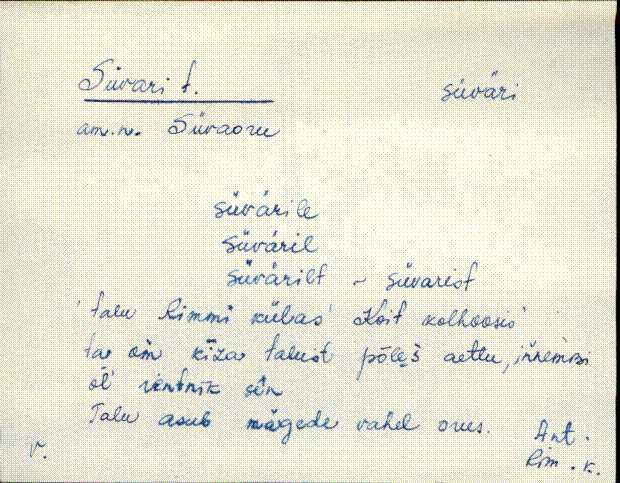 Süvari t. süväri
am.n. Süvaoru
süvärile
süväril
süvärilt ~ süvarist
talu Rimmi külas Koit kolhoosis
ta om talust aettu, innemisi
öl´ rentnik sin
Talu asub mägede vahel orus.
Ant.
Rim. k.
v.